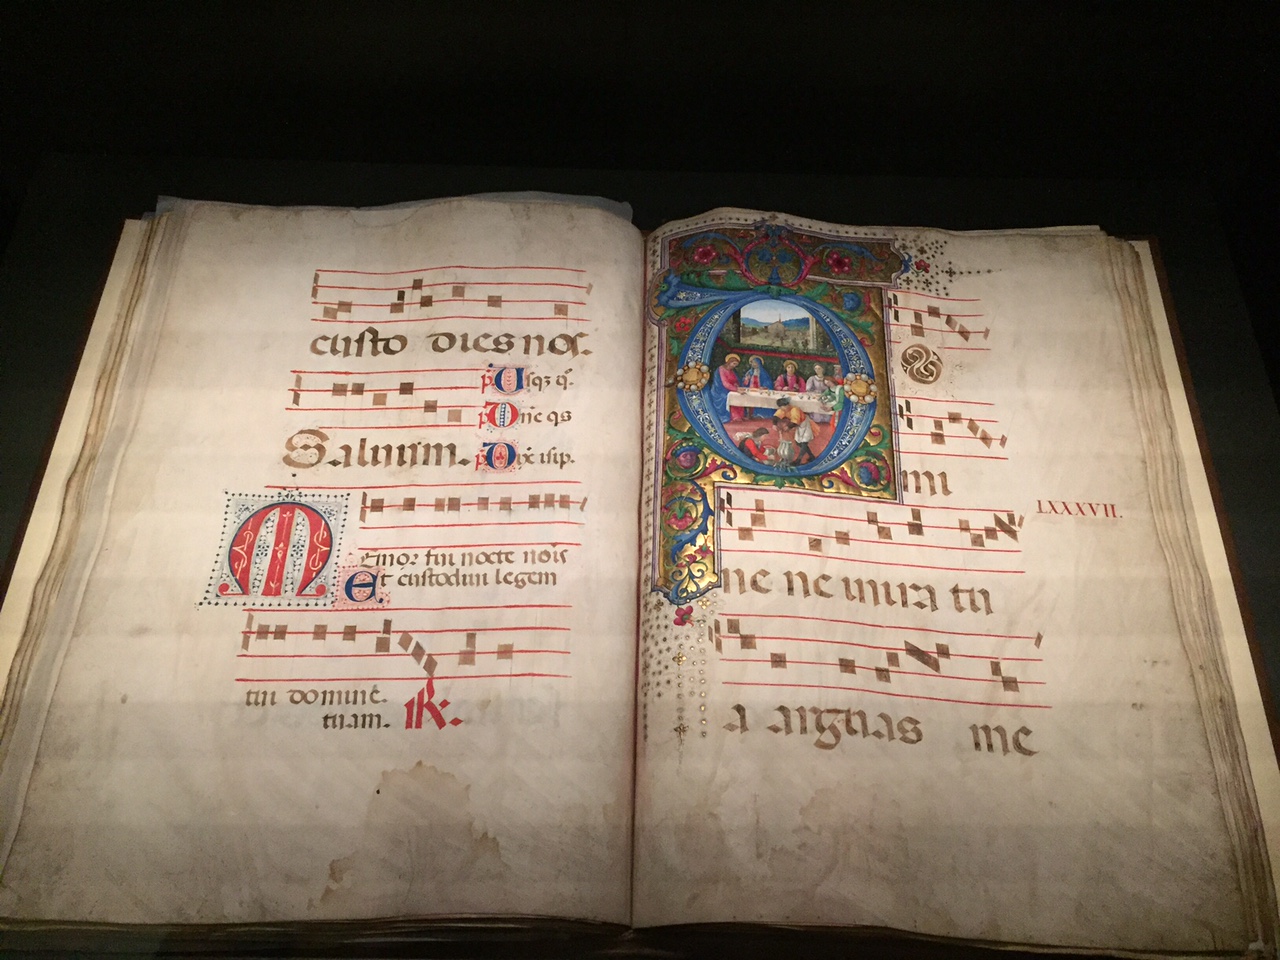 custodies nos.
p̄ Usqz q̄.
p̄ Don̄c qs
Saluum. p̄ Dix̄ isip.
Memor fui nocte noīs
Et custodiui legem
tui domine.
tuam. R.
Domi
LXXXVII.
ne ne in ira tu
a arguas me